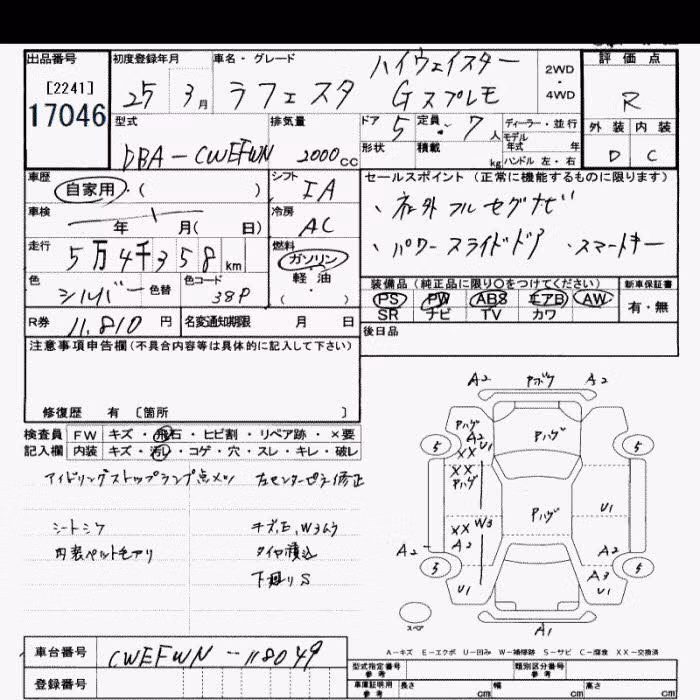 出品番号 初度登録年月 車名・グレード 評価点
[2241] 17046
25 3月 ラフェスタ ハイウェイスター Gスプレモ
2WD・4WD
R
型式 排気量 ドア 5 定員 7人
ディーラー・並行
モデル年式 年
形状 積載 kg ハンドル 左・右
外装 内装
D C
DBA-CWEFWN 2000cc
車歴 自家用・( )
シフト IA
セールスポイント(正常に機能するものに限ります)
、社外フルセグナビ
、パワースライドドア 、スマートキー
車検 年 月( 日)
冷房 AC
走行 5万4千358km
燃料 ガソリン 軽油 ( )
色 シルバー 色替 色コード 38P
装備品(純正品に限り○をつけてください) 新車保証書
PS PW ABS エアB AW 有・無
SR ナビ TV カワ
R券 11,810円 名変通知期限 月 日
後日品
注意事項申告欄(不具合内容等は具体的に記入して下さい)
修復歴 有 [箇所 ]
検査員 FW キズ・飛石・ヒビ割・リペア跡・×要
記入欄 内装 キズ・汚レ・コゲ・穴・スレ・キレ・破レ
アイドリングストップランプ点メツ 左センターピラ修正
シートシワ キズ,E,W3ムラ
内装ペットモアリ タイヤ積込
下廻りS
A2 Pボケ A2
Pハゲ A2 U1 Pハゲ
5 XX 5
XX Pハゲ
Pハゲ U1
XX W3
A2 A2 A2
5 A3 5
U1 U1
スペア A1
A-キズ E-エクボ U-凹み W-補修跡 S-サビ C-腐食 XX-交換済
車台番号 CWEFWN-118049
型式指定番号 参考 類別区分番号 参考
登録番号
車庫証明用 参考 長さ cm 幅 cm 高さ cm